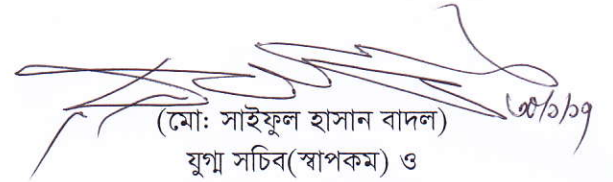 ৩০/১/১৭
(মো: সাইফুল হাসান বাদল)
যুগ্ম সচিব(স্বাপকম) ও